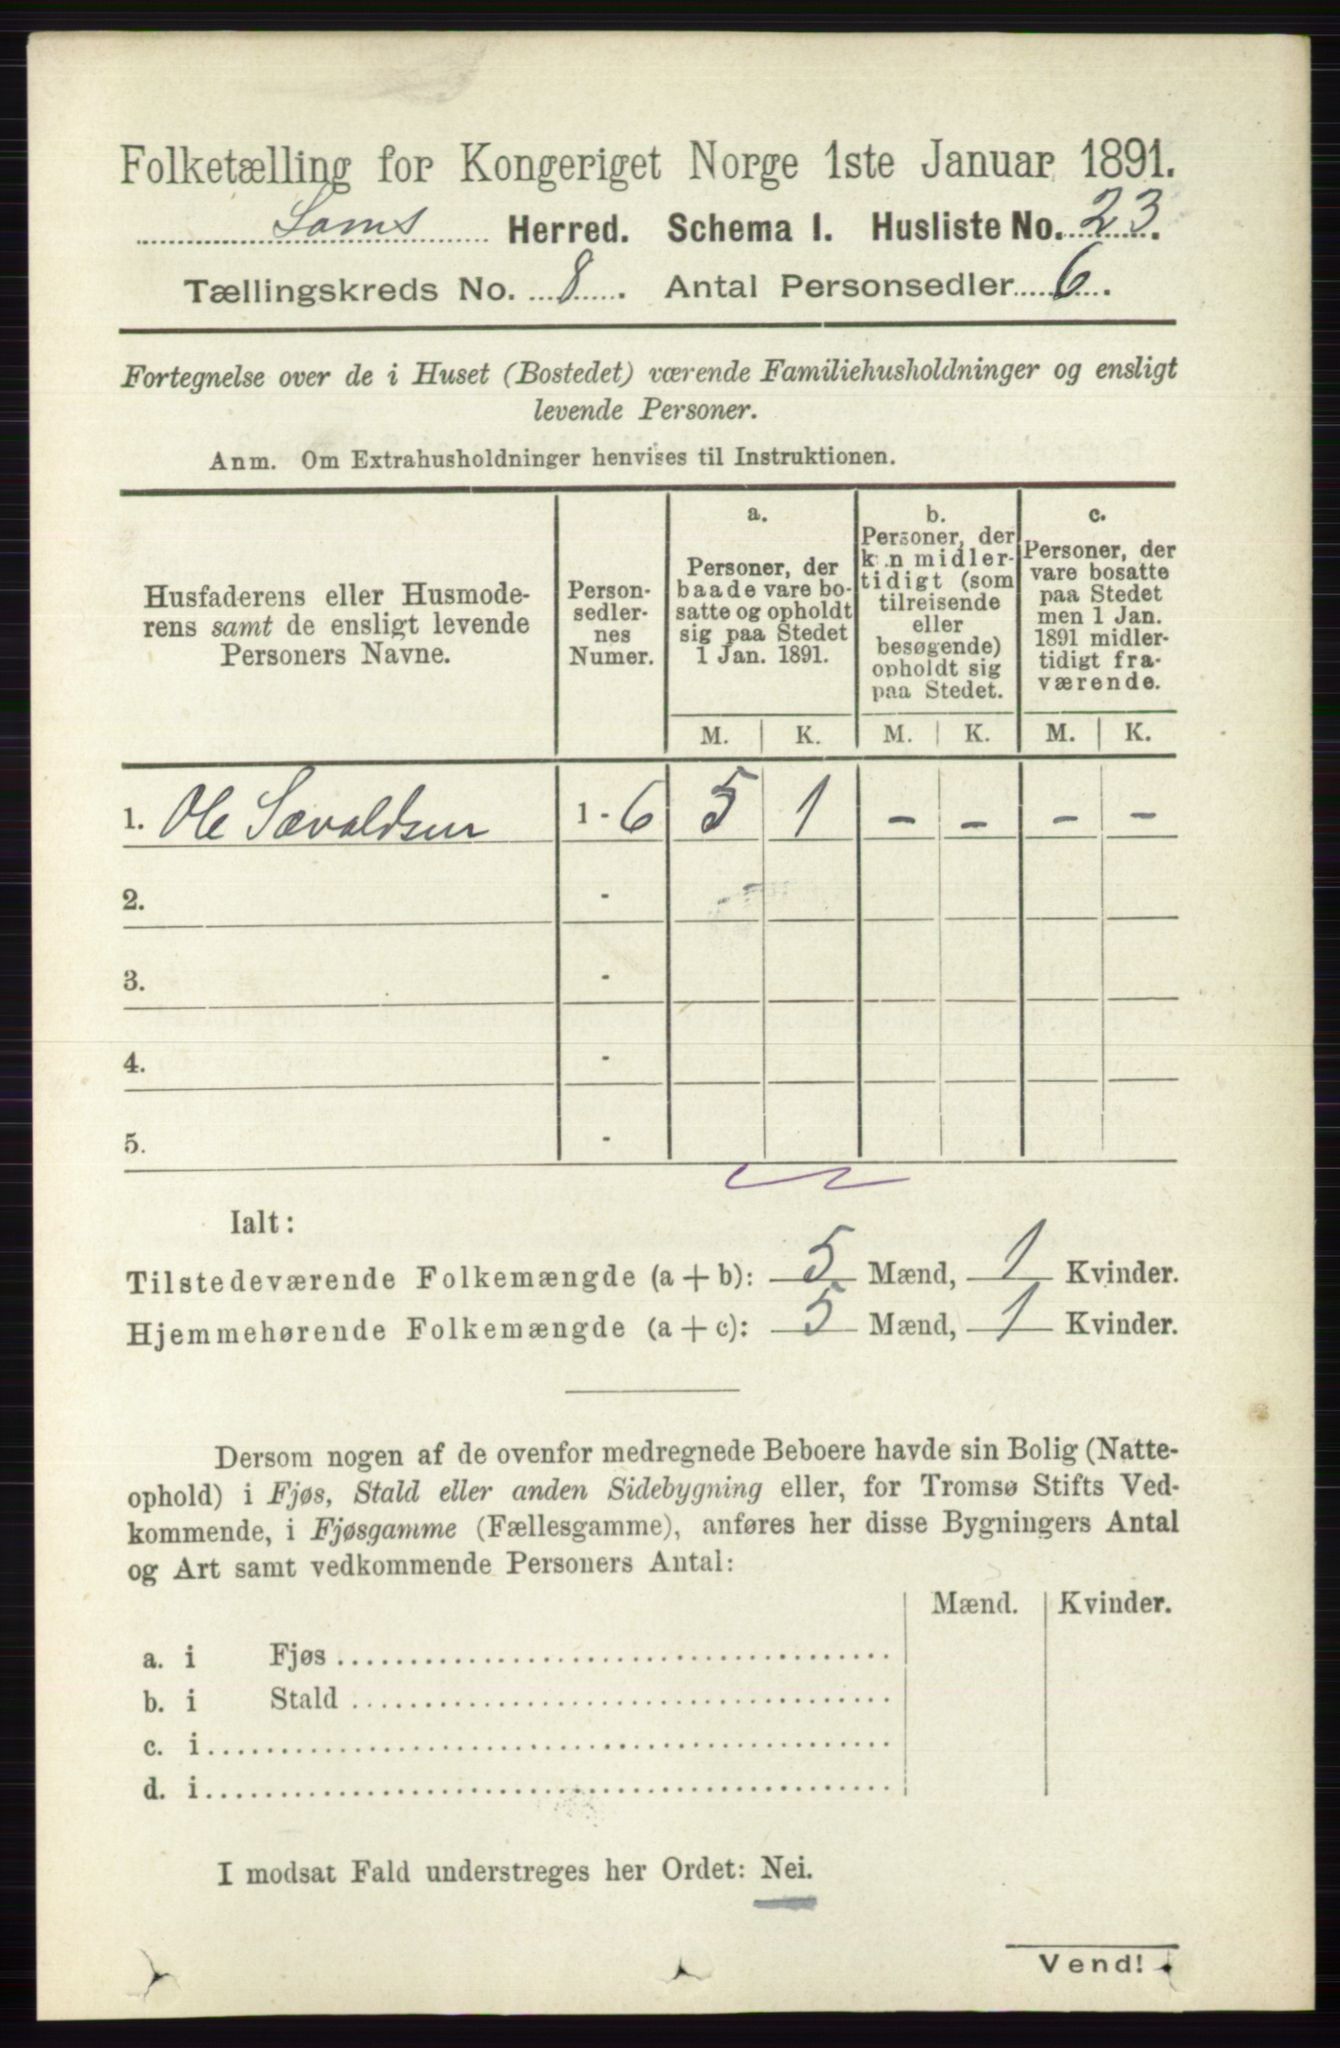 Folketælling for Kongeriget Norge 1ste Januar 1891.
Loms Herred. Schema I. Husliste No. 23.
Tællingskreds No. 8. Antal Personsedler 6.
Fortegnelse over de i Huset (Bostedet) værende Familiehusholdninger og ensligt
levende Personer.
Anm. Om Extrahusholdninger henvises til Instruktionen.
Husfaderens eller Husmode-
rens samt de ensligt levende
Personers Navne.
Person-
sedler-
nes
Numer.
a.
Personer, der
baade vare bo-
satte og opholdt
sig paa Stedet
1 Jan. 1891.
b.
Personer, der
kun midler-
tidigt (som
tilreisende
eller
besøgende)
opholdt sig
paa Stedet.
c.
Personer, der
vare bosatte
paa Stedet
men 1 Jan.
1891 midler-
tidigt fra-
værende.
M. K. M. K. M. K.
1. Ole Sævaldsen 1 - 6 5 1 - - - -
2. -
3. -
4. -
5. -
Ialt:
Tilstedeværende Folkemængde (a + b): 5 Mænd, 1 Kvinder.
Hjemmehørende Folkemængde (a + c): 5 Mænd, 1 Kvinder.
Dersom nogen af de ovenfor medregnede Beboere havde sin Bolig (Natte-
ophold) i Fjøs, Stald eller anden Sidebygning eller, for Tromsø Stifts Ved-
kommende, i Fjøsgamme (Fællesgamme), anføres her disse Bygningers Antal
og Art samt vedkommende Personers Antal:
Mænd. Kvinder.
a. i Fjøs
b. i Stald
c. i
d. i
I modsat Fald understreges her Ordet: Nei.
Vend!